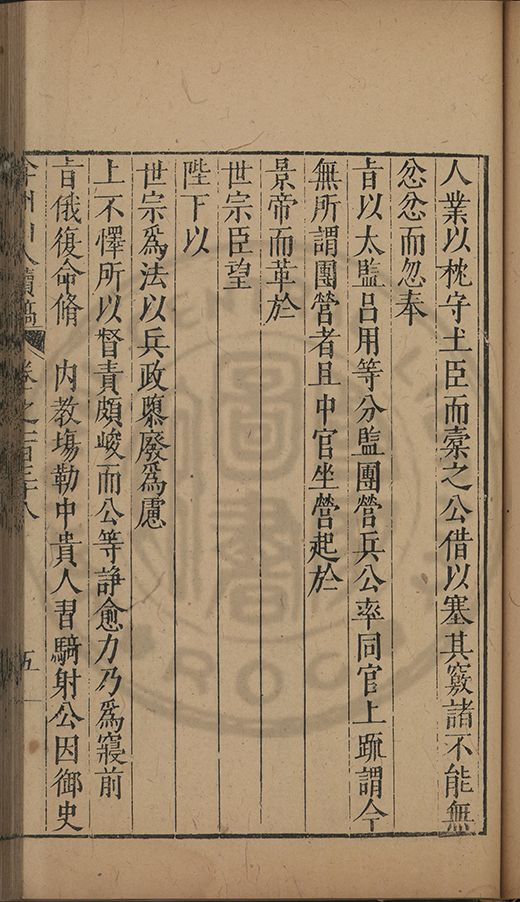 人業以枕守土臣而橐之公借以塞其竅諸不能無
忿忿而忽奉
旨以太監呂用等分監團營兵公率同官上䟽謂今
無所謂團營者且中官坐營起於
景帝而革於
世宗臣望
陛下以
世宗為法以兵政隳廢為慮
上不懌所以督責頗峻而公等諍愈力乃為寢前
旨俄復命脩　内教場勒中貴人習騎射公因御史
弇州山人續稿　卷之一百三十八　五